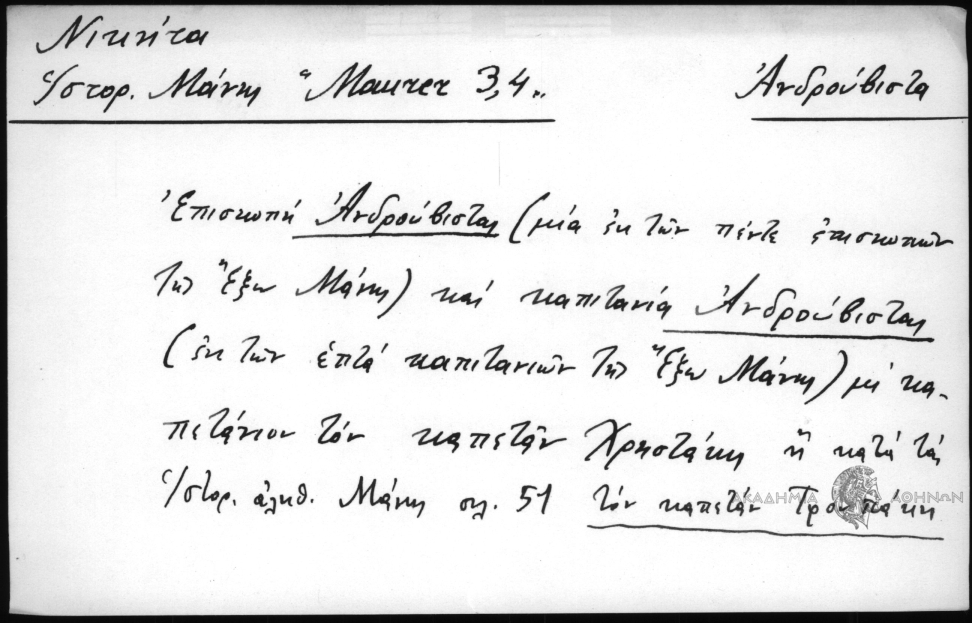 Νικήτα
Ἱστορ. Μάνης "Maurer 3,4„ Ἀνδρούβιστα
Ἐπισκοπή Ἀνδρούβιστας (μία ἐκ τῶν πέντε ἐπισκοπῶν
τῆς Ἔξω Μάνης) καί καπιτανία Ἀνδρούβιστας
(ἐκ τῶν ἑπτά καπιτανιῶν τῆς Ἔξω Μάνης) μέ κα-
πετάνιον τόν καπετάν Χρηστάκη ἤ κατά τάς
Ἱστορ. ἀληθ. Μάνης σελ. 51 τόν καπετάν Τρουπάκη
ΑΚΑΔΗΜΙΑ ΑΘΗΝΩΝ